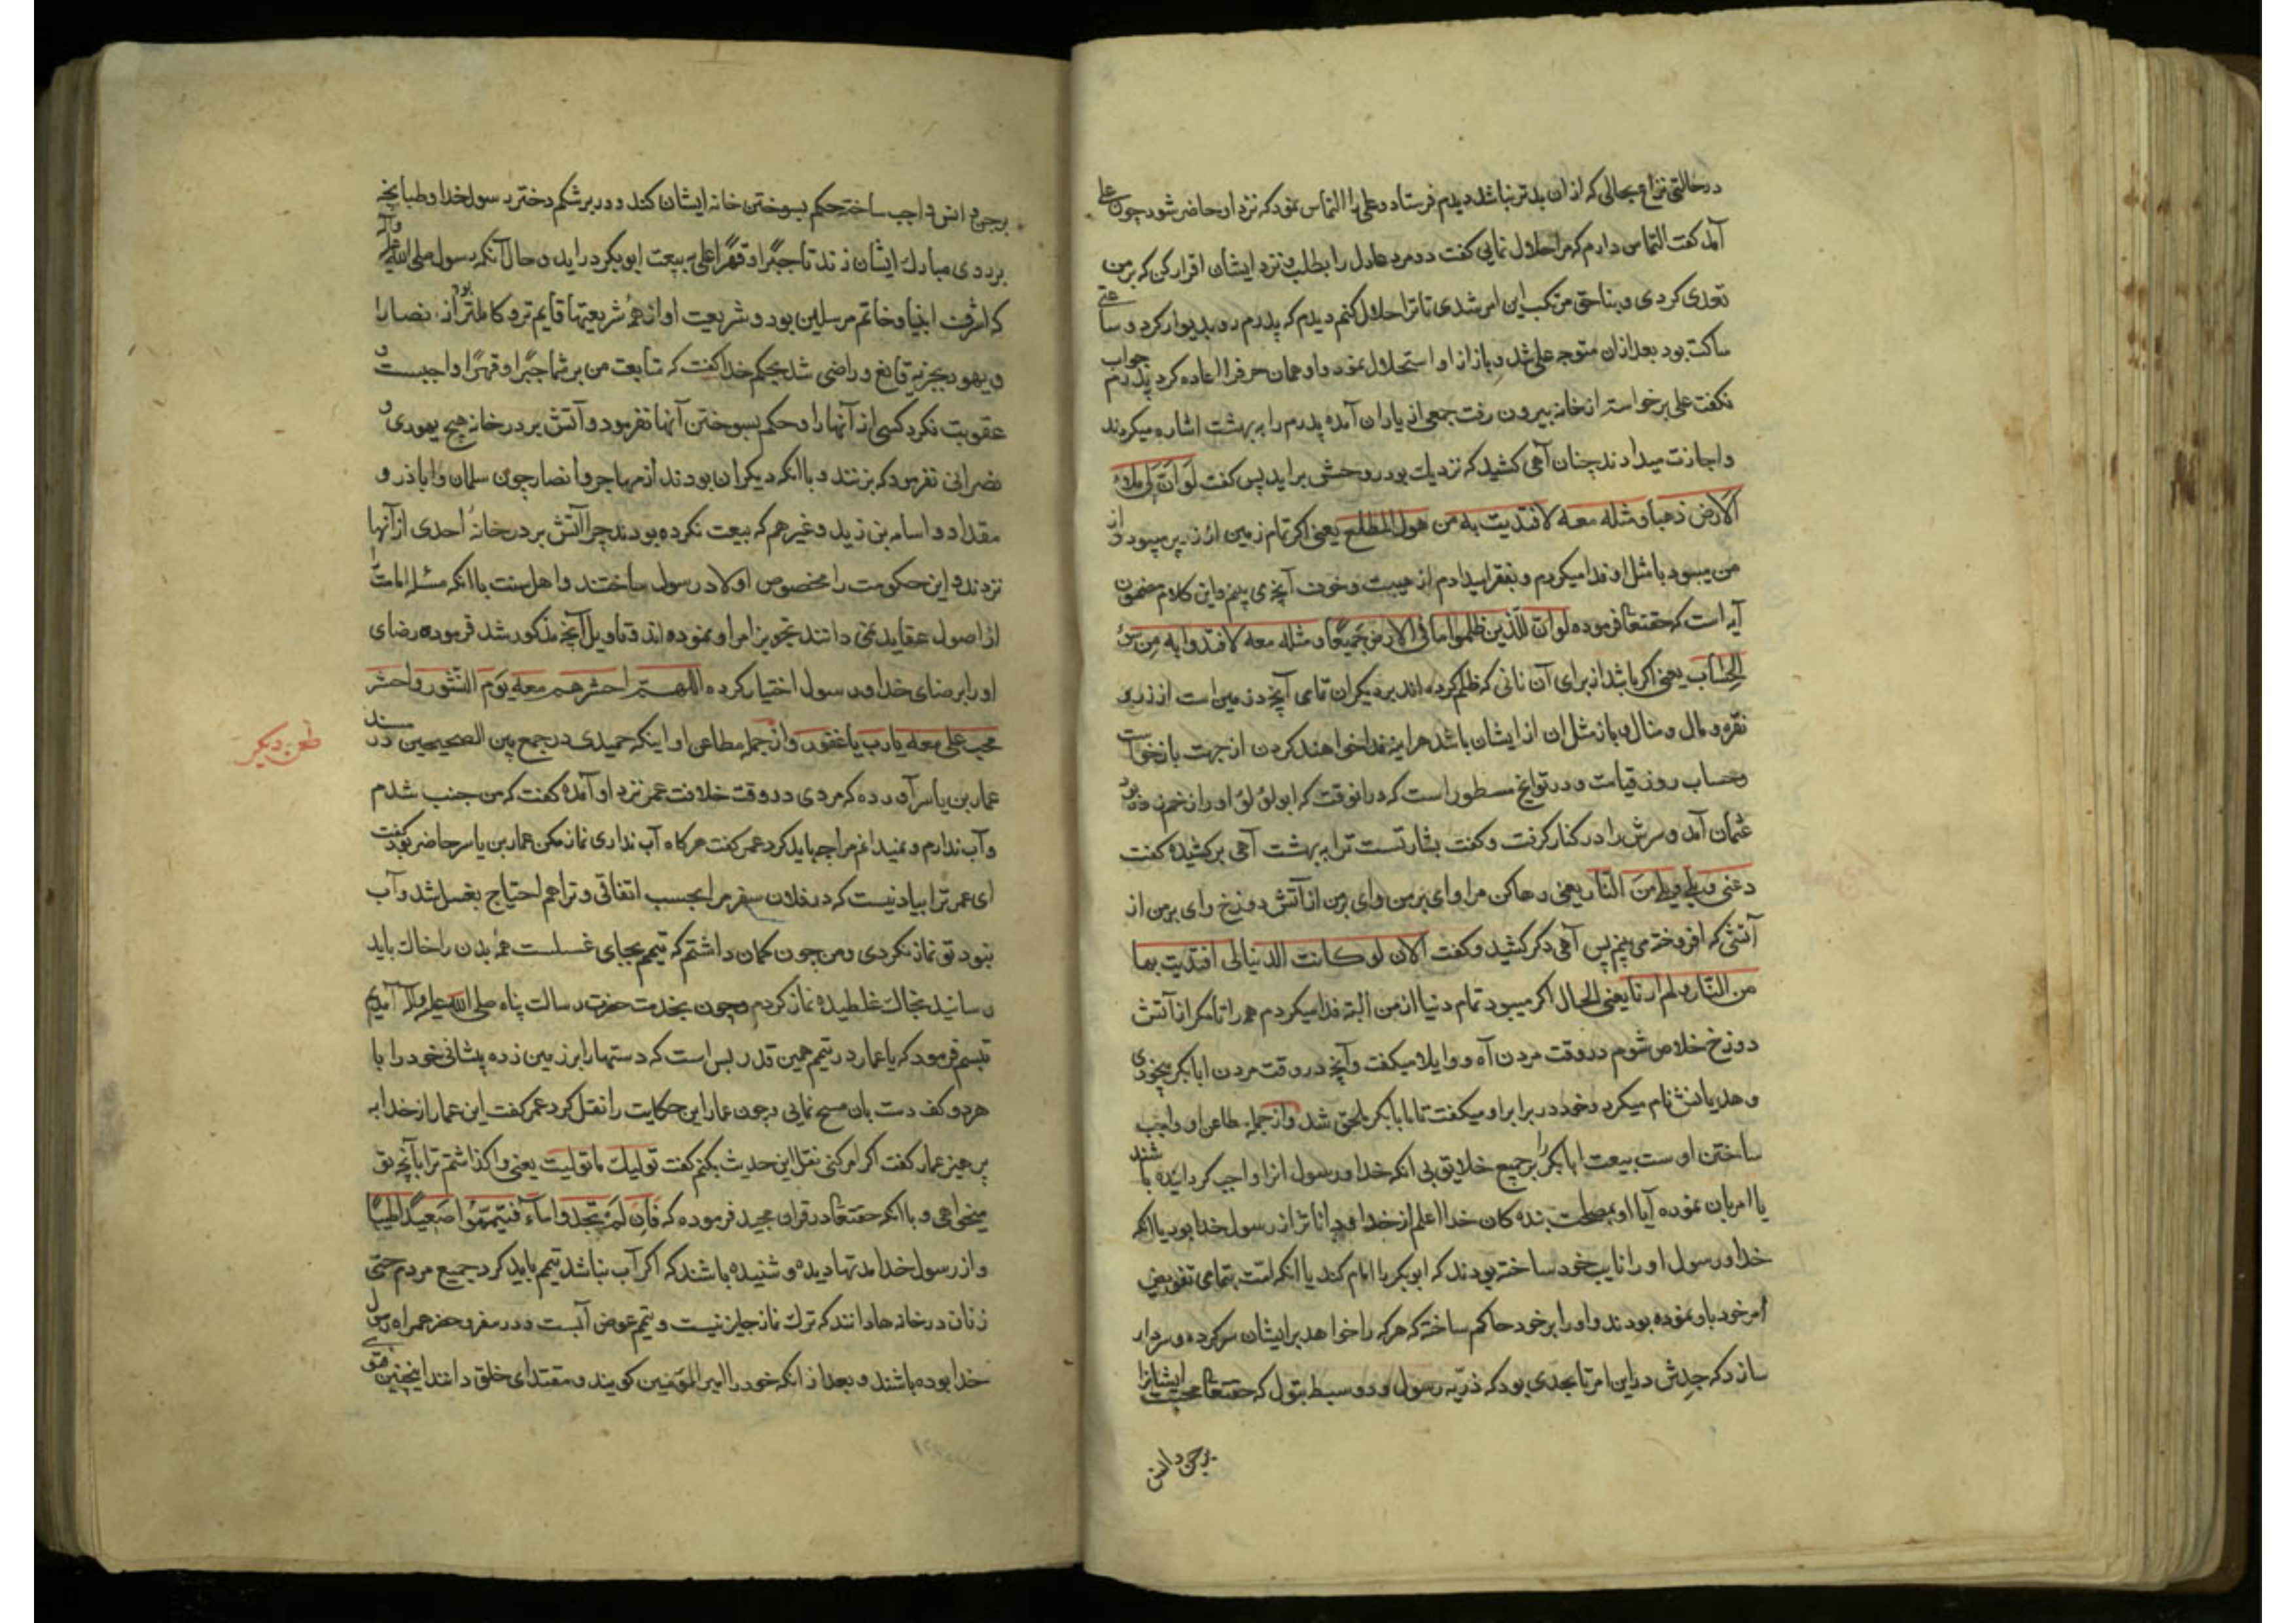 درحالتی نزاع بحالی که ازان بدتر نباشد دیدم فرستاد و علی را التماس نمود که نزد او حاضر شود چون علی
آمد کفت التماس دارم که مرا حلال نمایی کفت دو مرد عادل را بطلب و نزد ایشان اقرار کن که بر من
تعدی کردی و بناحق مرتکب این امر شدی تا ترا حلال کنم دیدم که پدرم رو بدیوار کرد و ساعتی
ساکت بود بعد ازان متوجه علی شد و باز از او استحلال نمود و او همان حرف را اعاده کرد پدرم جواب
نکفت علی برخواسته ازخانه بیرون رفت جمعی از یاران آمده پدرم را به بهشت اشاره میکردند
واجازت میدادند چنان آهی کشید که نزدیك بود روحش براید پس کفت لو ان لی ملاء
الارض ذهبا و مثله معه لافتدیت به من هول المطلع یعنی اکر تمام زمین از زر پر میبود و از
من میبود با مثل او فدا میکردم و بفقرا میدادم از هیبت و خوف آنچه می بینم واین کلام مضمون
آیه است که حقتعا فرموده لو ان للذین ظلموا ما فی الارض جمیعًا و مثله معه لافتدوا به من سوء
الحساب یعنی اکر باشد از برای آن نانی که ظلم کرده اند بر دیکران تمامی آنچه در زمین است از زر و
نقره و مال و منال و باز مثل ان از ایشان باشد هراینه فدا خواهند کردن از جهت بازخواست
وحساب روز قیامت و در تواریخ مسطور است که درانوقت که ابولؤلؤ او را زخم زده بود
عثمان آمد و سرش را در کنار کرفت و کفت بشارتست ترا به بهشت آهی برکشیده کفت
دعنی ویلی ویلی من النار یعنی رها کن مرا وای بر من وای بر من از آتش دوزخ وای بر من از
آتشی که افروخته می بینم پس آهی دکر کشید و کفت الآن لو کانت الدنیا لی افتدیت بها
من النار و لم ارنا یعنی الحال اکر میبود تمام دنیا از من البته فدا میکردم همه را تا مکر از آتش
دوزخ خلاص شوم در وقت مردن آه و واویلا میکفت و آنچه در وقت مردن ابابکر بیخودی
و هذیانش نام میکرد و خود در برابر او میکفت تا بابابکر ملحق شد و از جمله مطاعن او واجب
ساختن اوست بیعت ابابکر را بر جمیع خلایق بی انکه خدا و رسول انرا واجب کردانیده باشند
یا امر بان نموده آیا او بمصلحت بنده کان خدا اعلم از خدا و داناتر از رسول خدا بود یا انکه
خدا و رسول او را نایب خود ساخته بودند که ابوبکر را امام کند یا انکه امت بتمامی تفویض
امر خود باو نموده بودند و او را بر خود حاکم ساخته که هر که را خواهد بر ایشان سرکرده و سردار
سازد که جدش دراین امر تا بحدی بود که ذریه رسول و دو سبط بتول که حقتعا محبت ایشانرا
برجن و انس
برجن و انس واجب ساخته حکم بسوختن خانه ایشان کند و در بر شکم دختر رسول خدا و طبانچه
بر روی مبارك ایشان زند تا جبرًا و قهرًا علی به بیعت ابوبکر دراید و حال آنکه رسول صلی الله علیه وآله
که اشرف انبیا و خاتم مرسلین بود و شریعت او از همه شریعتها قایم تر و کاملتر بود از نصارا
و یهود بجزیه قانع و راضی شد بحکم خدا کفت که تابعت من بر شما جبرًا و قهرًا واجبست و
عقوبت نکرد کسی از آنها را و حکم بسوختن آنها نفرمود و آتش بر در خانه هیچ یهودی و
نصرانی نفرمود که بزنند و با انکه دیکران بودند از مهاجر و انصار چون سلمان و اباذر و
مقداد و اسامه بن زید و غیرهم که بیعت نکرده بودند چرا آتش بر در خانۀ احدی از آنها
نزدند و این حکومت را مخصوص اولاد رسول ساختند و اهل سنت با انکه مسئله امامت را
از اصول عقاید نمی دانند تجویز امر او نموده اند و تاویل آنچه مذکور شد فرموده رضای
او را بر رضای خدا و رسول اختیار کرده اللهم احشرهم معه یوم النشور و احشر
محب علی معه یا رب یا غفور و از جمله مطاعن او اینکه حمیدی در جمع بین الصحیحین در مسند
طعن دیکر
عمار بن یاسر آورده که مردی در وقت خلافت عمر نزد او آمده کفت که من جنب شدم
و آب ندارم و نمیدانم مرا چه باید کرد عمر کفت هرکاه آب نداری نماز مکن عمار بن یاسر حاضر بود کفت
ای عمر ترا بیاد نیست که در فلان سفر مرا بحسب اتفاقی و ترا هم احتیاج بغسل شد و آب
نبود تو نماز نکردی ومن چون کمان داشتم که تیمم بجای غسلست همه بدن را خاك باید
رسانید بخاك غلطیده نماز کردم و چون بخدمت حضرت رسالت پناه صلی الله علیه وآله آمدیم
تبسم فرمود که یا عمار در تیمم همین قدر بس است که دستها را بر زمین زده پیشانی خود را با
هر دو کف دست بان مسح نمایی و چون عمار این حکایت را نقل کرد عمر کفت این عمار از خدا به
پرهیز عمار کفت اکر امر کنی نقل این حدیث نکنم کفت تولیك ما تولیت یعنی واکذاشتم ترا بآنچه تو
میخواهی و با انکه حقتعا در قران مجید فرموده که فان لم تجدوا ماء فتیمموا صعیدًا طیبًا
و از رسول خدا مدتها دیده و شنیده باشند که اکر آب نباشد تیمم باید کرد جمیع مردم حتی
زنان در خانه ها دانند که ترك نماز جایز نیست و تیمم عوض آبست و در سفر و حضر همراه رسول
خدا بوده باشند و بعد از انکه خود را امیر المؤمنین کویند و مقتدای خلق دانند اینچنین فتوی